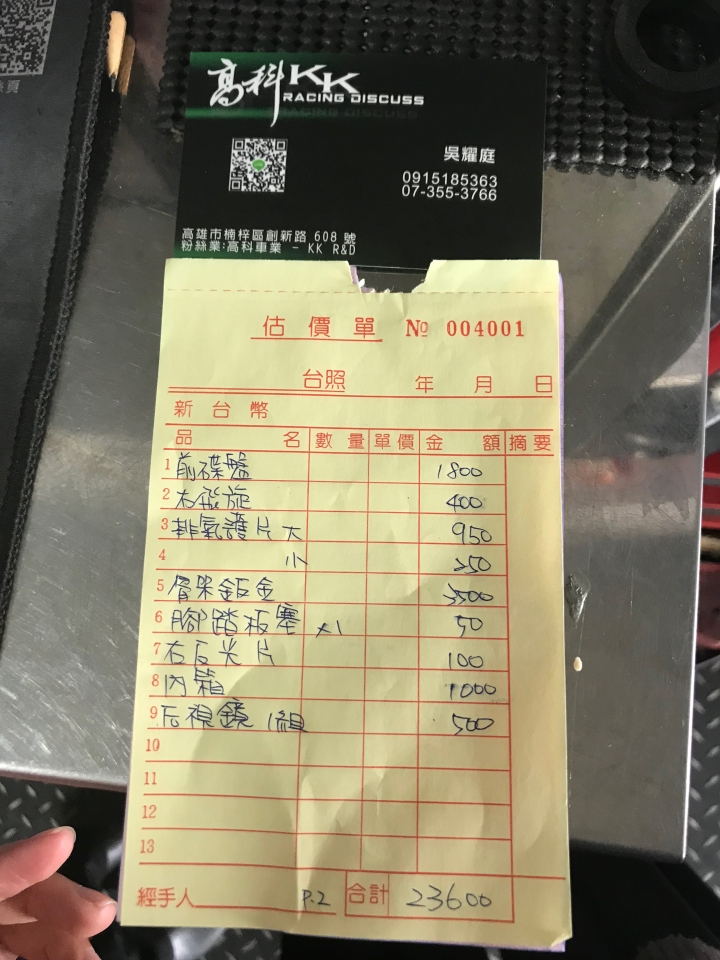 高科KK
RACING DISCUSS
吳耀庭
0915185363
07-355-3766
高雄市楠梓區創新路 608 號
粉絲業:高科車業 - KK R&D
估價單 No 004001
台照 年 月 日
新台幣
品名 數量 單價 金額 摘要
1 前碟盤 1800
2 右飛旋 400
3 排氣護片 大 950
4 小 250
5 骨架鈑金 3500
6 腳踏板塞 x1 50
7 右反光片 100
8 內箱 1000
9 后視鏡 1組 500
10
11
12
13
經手人 P.2 合計 23600